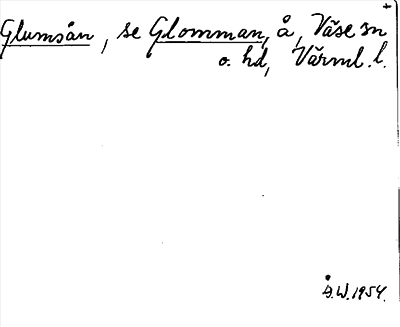 +
Glumsån, se Glomman, å, Väse sn
o. hd, Värml. l.
Å.W. 1954.